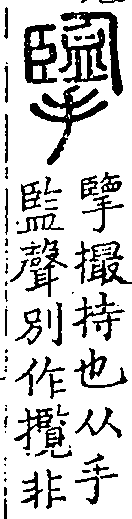 擥
擥撮持也从手
監聲別作攬非